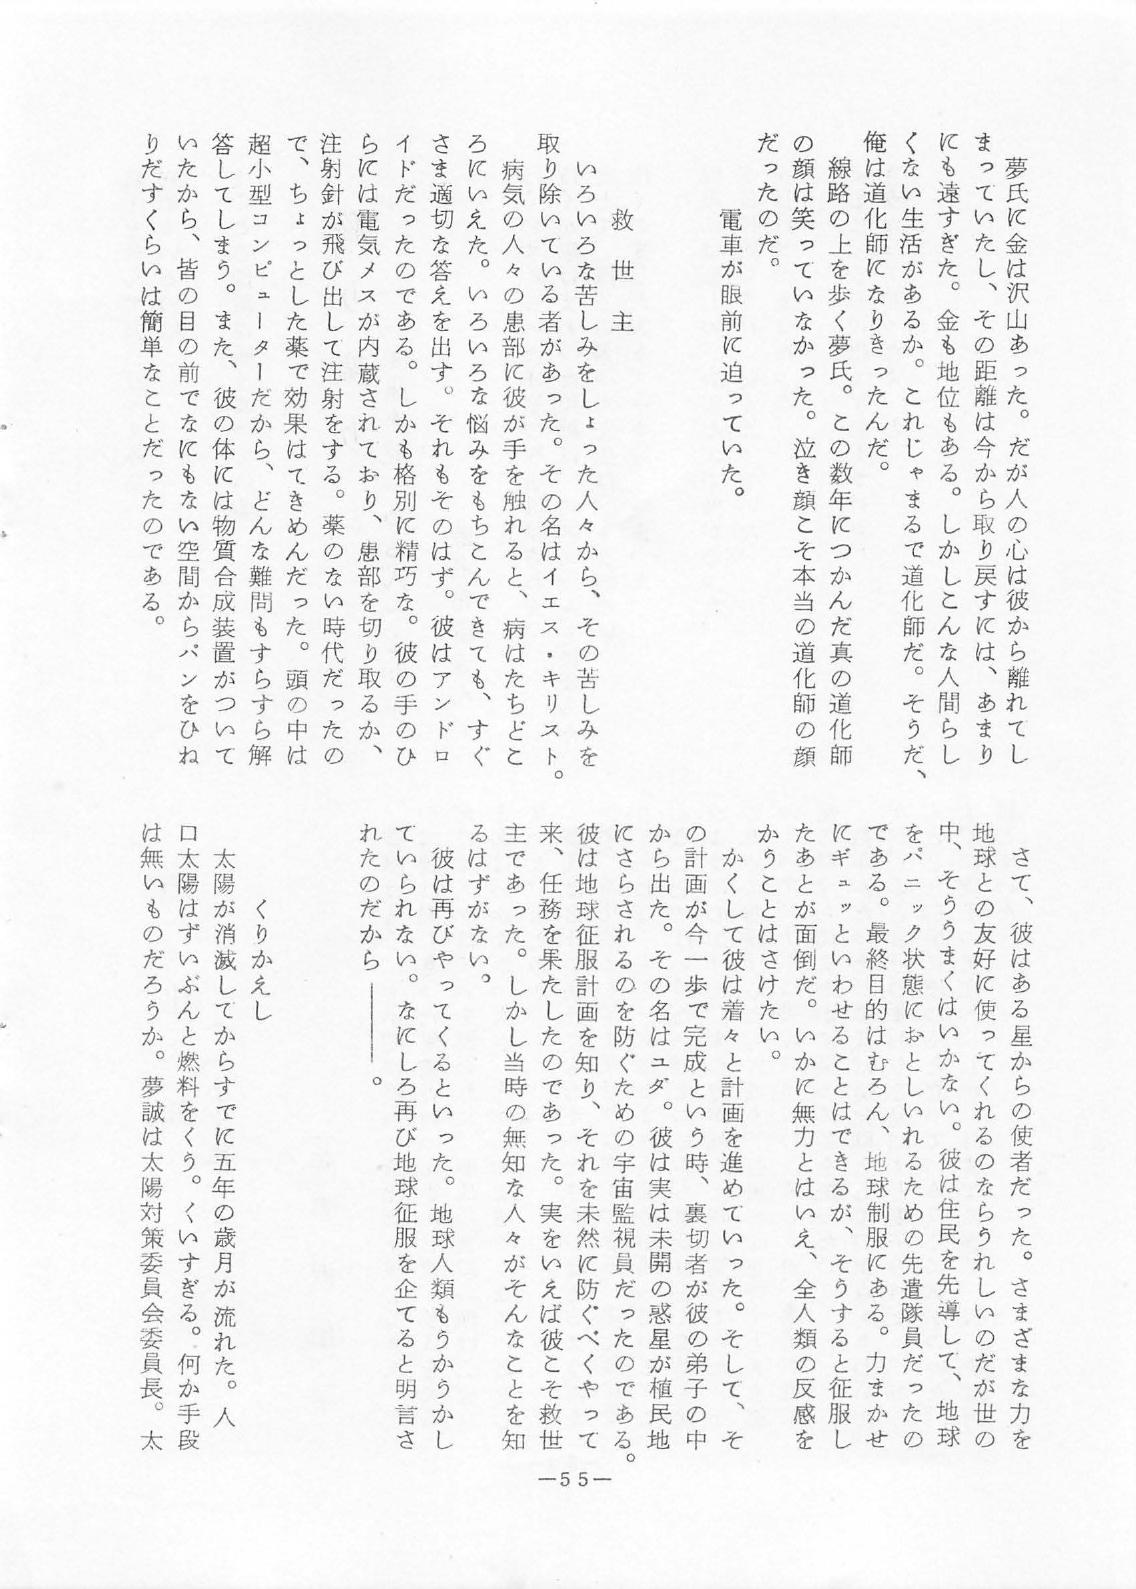 夢氏に金は沢山あった。だが人の心は彼から離れてし
まっていたし、その距離は今から取り戻すには、あまり
にも遠すぎた。金も地位もある。しかしこんな人間らし
くない生活があるか。これじゃまるで道化師だ。そうだ、
俺は道化師になりきったんだ。
線路の上を歩く夢氏。この数年につかんだ真の道化師
の顔は笑っていなかった。泣き顔こそ本当の道化師の顔
だったのだ。
電車が眼前に迫っていた。
救世主
いろいろな苦しみをしょった人々から、その苦しみを
取り除いている者があった。その名はイエス・キリスト。
病気の人々の患部に彼が手を触れると、病はたちどこ
ろにいえた。いろいろな悩みをもちこんできても、すぐ
さま適切な答えを出す。それもそのはず。彼はアンドロ
イドだったのである。しかも格別に精巧な。彼の手のひ
らには電気メスが内蔵されており、患部を切り取るか、
注射針が飛び出して注射をする。薬のない時代だったの
で、ちょっとした薬で効果はてきめんだった。頭の中は
超小型コンピューターだから、どんな難問もすらすら解
答してしまう。また、彼の体には物質合成装置がついて
いたから、皆の目の前でなにもない空間からパンをひね
りだすくらいは簡単なことだったのである。
さて、彼はある星からの使者だった。さまざまな力を
地球との友好に使ってくれるのならうれしいのだが世の
中、そううまくはいかない。彼は住民を先導して、地球
をパニック状態におとしいれるための先遣隊員だったの
である。最終目的はむろん、地球制服にある。力まかせ
にギュッといわせることはできるが、そうすると征服し
たあとが面倒だ。いかに無力とはいえ、全人類の反感を
かうことはさけたい。
かくして彼は着々と計画を進めていった。そして、そ
の計画が今一歩で完成という時、裏切者が彼の弟子の中
から出た。その名はユダ。彼は実は未開の惑星が植民地
にさらされるのを防ぐための宇宙監視員だったのである。
彼は地球征服計画を知り、それを未然に防ぐべくやって
来、任務を果たしたのであった。実をいえば彼こそ救世
主であった。しかし当時の無知な人々がそんなことを知
るはずがない。
彼は再びやってくるといった。地球人類もうかうかし
ていられない。なにしろ再び地球征服を企てると明言さ
れたのだから――――。
くりかえし
太陽が消滅してからすでに五年の歳月が流れた。人
口太陽はずいぶんと燃料をくう。くいすぎる。何か手段
は無いものだろうか。夢誠は太陽対策委員会委員長。太
—55—